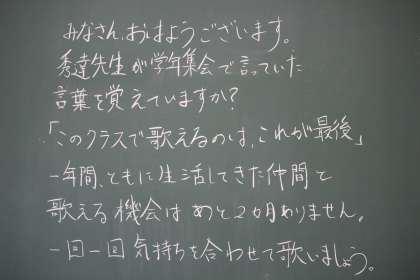 みなさん、おはようございます。
秀達先生が学年集会で言っていた
言葉を覚えていますか？
「このクラスで歌えるのは、これが最後」
一年間、ともに生活してきた仲間と
歌える機会はあと2ヵ月ありません。
一回一回気持ちを合わせて歌いましょう。